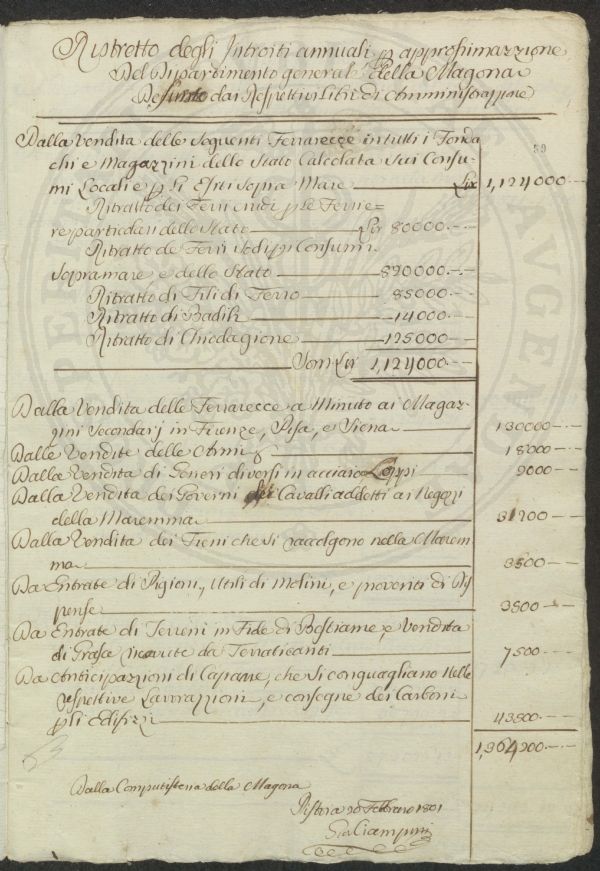 Ristretto degli Introiti annuali p approssimazzione
Del Dipartimento generale della Magona
Desunto dai Respettivi Libri di Amministrazione
59
Dalla Vendita delle Seguenti Ferrarecce in tutti i Fonda
chi e Magazzini dello Stato Calcolata Sui Consu-
mi Locali e p gli Esiti Sopra Mare Lir 1,124000.--
Ritratto dei Ferri p le Ferrie=
re particolari dello Stato Lir 80000.--
Ritratto de Ferri Sodi pi Consumi
Sopramare e dello Stato 820000.--
Ritratto di Fili di Ferro 85000.--
Ritratto di Badili 14000.--
Ritratto di Chiodagione 125000.--
Som Lir 1,124000.--
Dalla Vendita delle Ferrarecce a Minuto ai Magaz-
zini Secondarj in Firenze, Pisa, e Siena 130000.--
Dalle Vendite delle Armi 18000.--
Dalla Vendita di Generi diversi in acciaro 9000.--
Dalla Vendita dei Governi dei Cavalli addetti ai Negozi
della Maremma
Dalla Vendita dei Fieni che si raccolgono nella Marem
ma 3500.--
Da Entrate di Pigioni, Utili di Molini, e proventi di Dis
pense 3800.--
Da Entrate di Terreni in Fide di Bestiame, e Vendita
di Grasce da Terraticanti 7500.--
Da Anticipazioni di Capanne, che si conguagliano nelle
respettive Lavorazzioni, e consegne dei Carboni
p gli Edifizzi
1,364200.--
Dalla Computisteria della Magona
20 Febbraro 1801
Ciampini